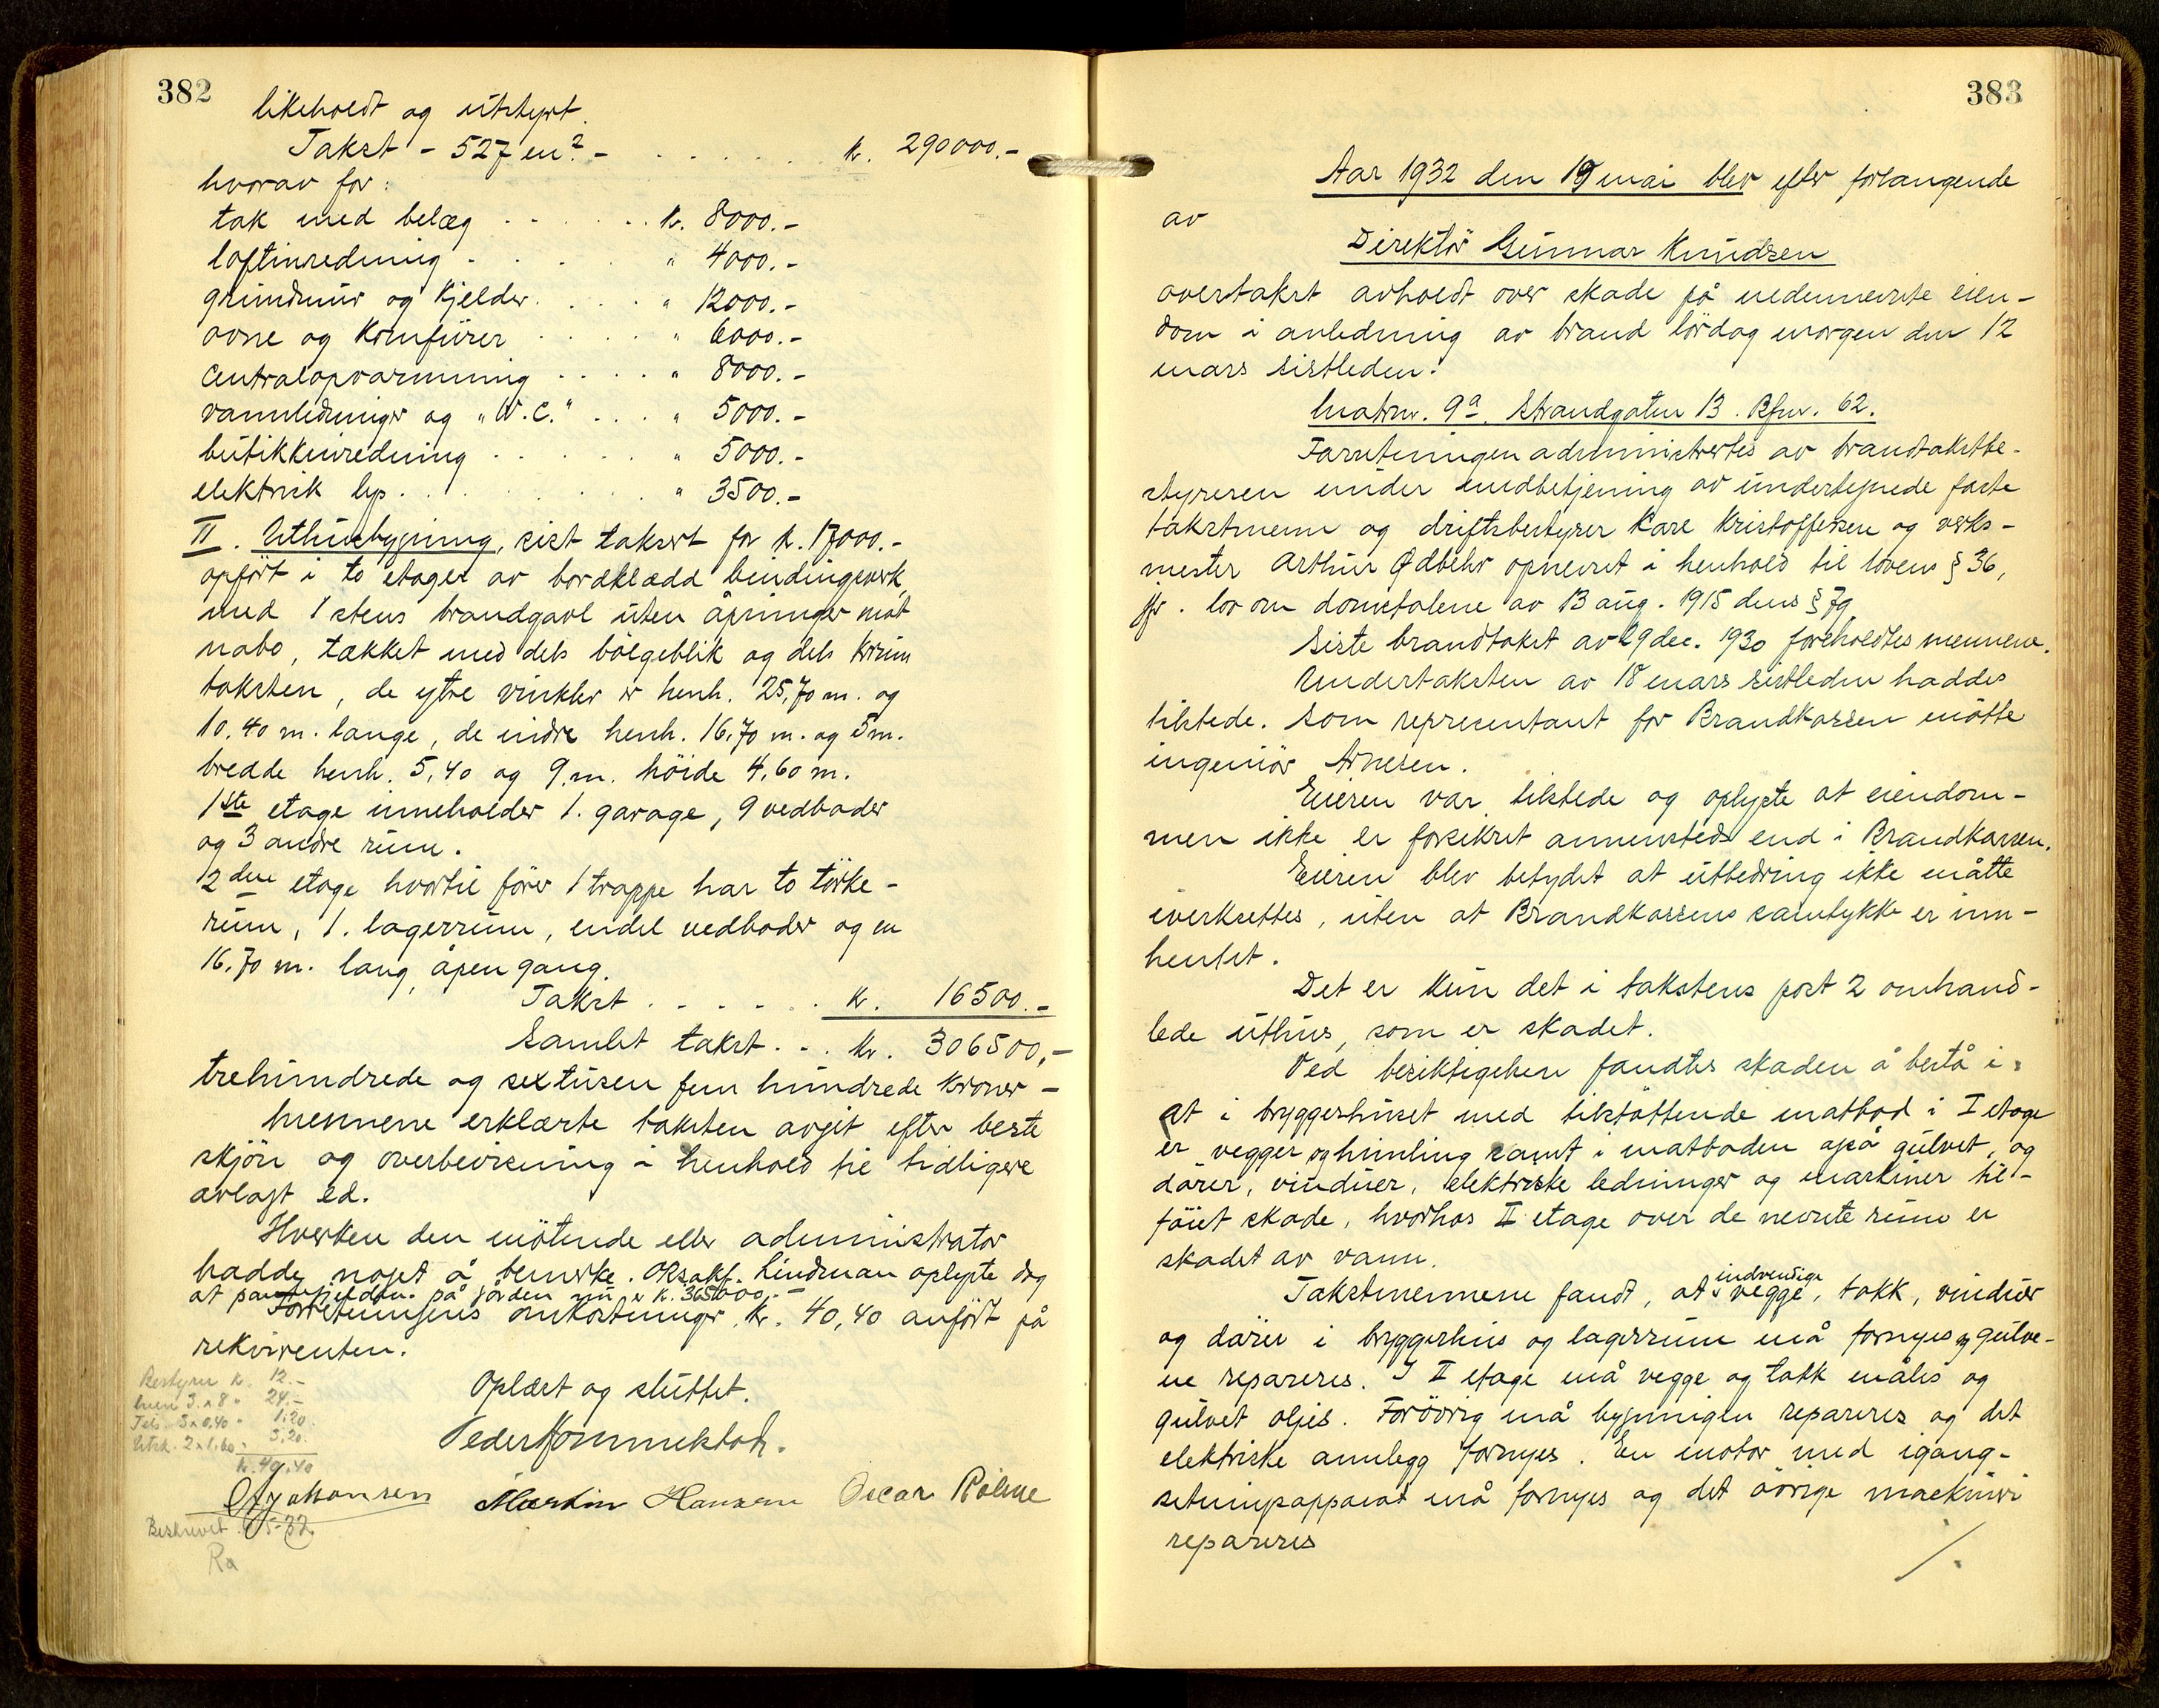 382
likeholdt og utstyrt.
Takst - 527 m². - . . . . . kr. 290000.-
hvorav for:
tak med belæg . . . . . . kr. 8000.-
loftinredning . . . . . " 4000.-
grundmur og kjelder . . . . " 12000.-
ovne og komfurer . . . . " 6000.-
centralopvarmning . . . . " 8000.-
vannledninger og "W.C." . . . " 5000.-
butikkinredning . . . . . " 5000.-
elektrisk lys . . . . . . . . " 3500.-
II. Uthusbygning, sist taksert for kr. 17000.-
opført i to etager av bordklædd bindingsverk,
med 1 stens brandgavl uten åpninger mot
nabo, tækket med dels bølgeblik og dels krum
taksten, de ytre vinkler er henh. 25,70 m. og
10.40 m. lange, de indre henh. 16.70 m. og 5 m.
bredde henh. 5,40 og 9. m. høide 4,60 m.
1ste etage inneholder 1. garage, 9 vedboder
og 3 andre rum.
2den etage hvortil fører 1 trappe har to tørke-
rum, 1. lagerrum, endel vedboder og en
16.70 m. lang, åpen gang.
Takst . . . . . . kr. 16500.-
Samlet takst . . . kr. 306500,-
trehundrede og sextusen fem hundrede kroner -
Mennene erklærte taksten avgit efter beste
skjøn og overbevisning i henhold til tidligere
avlagt ed.
Hverken den møtende eller administrator
hadde noget å bemerke. O.Rsakf. Lindman oplyste dog
at pantegjelden på jorden nu er kr. 365000.-
Forretningens omkostninger kr. 40,40 anført på
rekvirenten.
Bestyrer kr. 12.-
Menn 3 x 8 " 24.-
Tels. 3 x 0,40 " 1,20.
Utsk. 2 x 1,60 " 3,20.
kr. 40,40
Oplæst og sluttet.
Peder Kommektoh.
Johansen Martin Hansen Oscar Rolme
Beskrevet 6/5-32
Ra
383
Aar 1932 den 19 mai blev efter forlangende
av
Direktør Gunnar Knudsen
overtakst avholdt over skade på nedennevnte eien-
dom i anledning av brand lørdag morgen den 12
mars sistleden:
Matrnr. 9a. Strandgaten 13. Bfnr. 62.
Forretningen administrertes av brandtakstbe-
styreren under medbetjening av undertegnede faste
takstmenn og driftsbestyrer Kare Kristoffersen og verks-
mester Arthur Ødbehr opnevnt i henhold til lovens § 36,
jfr. lov om domstolene av 13 aug. 1915 dens § 79
Siste brandtakst av 29 dec. 1930 foreholdtes mennene.
Undertaksten av 18 mars sistleden haddes
tilstede. Som representant for Brandkassen møtte
ingeniør Arnesen.
Eieren var tilstede og oplyste at eiendom-
men ikke er forsikret annensteds end i Brandkassen.
Eieren blev betydet at utbedring ikke måtte
iverksettes, uten at Brandkassens samtykke er inn-
hentet.
Det er kun det i takstens post 2 omhand-
lede uthus, som er skadet.
Ved besiktigelsen fandtes skaden å bestå i:
at i bryggerhuset med tilstøttende matbod i I etage
er vegger og himling samt i matboden også gulvet, og
dører, vinduer, elektriske ledninger og maskiner til-
føiet skade, hvorhos II etage over de nevnte rum er
skadet av vann.
Takstmennene fandt, at indvendige vegge, takk, vinduer
og dører i bryggerhus og lagerrum må fornyes og gulve-
ne repareres. I II etage må vegge og takk males og
gulvet oljes. Forøvrig må bygningen repareres og det
elektriske annlegg fornyes. En motor med igang-
setningsapparat må fornyes og det øvrige maskineri
repareres
/.